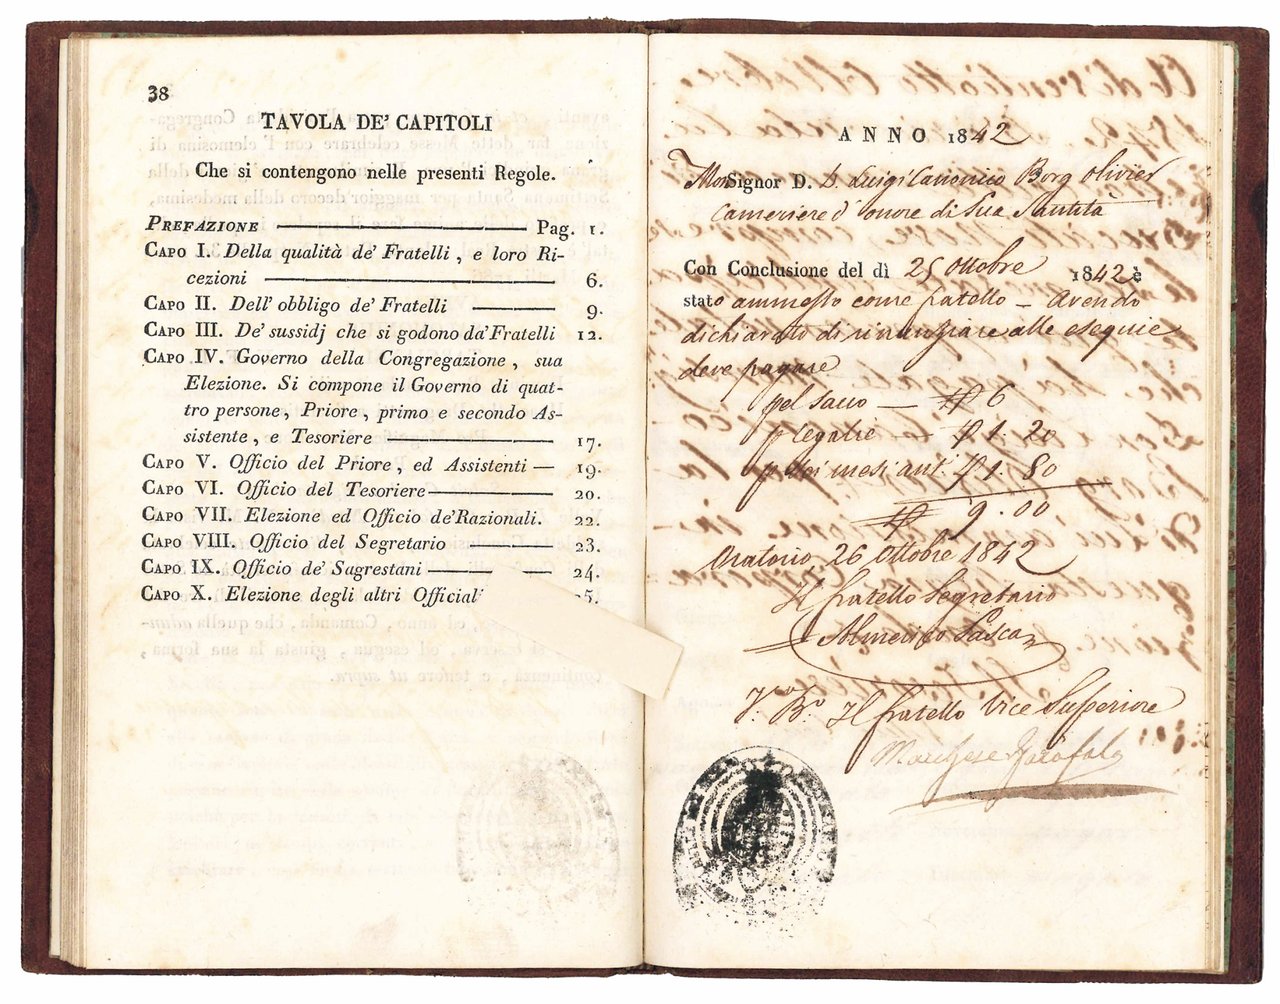 38
TAVOLA DE' CAPITOLI
Che si contengono nelle presenti Regole.
PREFAZIONE ——— Pag. 1.
CAPO I. Della qualità de' Fratelli , e loro Ri-
cezioni ——— 6.
CAPO II. Dell' obbligo de' Fratelli ——— 9.
CAPO III. De' sussidj che si godono da' Fratelli 12.
CAPO IV. Governo della Congregazione , sua
Elezione. Si compone il Governo di quat-
tro persone, Priore , primo e secondo As-
sistente , e Tesoriere ——— 17.
CAPO V. Officio del Priore, ed Assistenti — 19.
CAPO VI. Officio del Tesoriere ——— 20.
CAPO VII. Elezione ed Officio de' Razionali. 22.
CAPO VIII. Officio del Segretario ——— 23.
CAPO IX. Officio de' Sagrestani ——— 24.
CAPO X. Elezione degli altri Official 25.
ANNO 1842
MonSignor D. D. Luigi Canonico Borg Olivier
Cameriere d' onore di Sua Santità
Con Conclusione del dì 25 Ottobre 1842 è
stato ammesso come fratello — Avendo
dichiarato di rinunziare alle esequie
deve pagare
pel sacco — 6
p regalie — 1. 20
p sei mesi ant. 1. 80
9. 00
Oratorio 26 Ottobre 1842
Il fratello Segretario
V. B.º Il fratello Vice Superiore
Marchese Garofalo